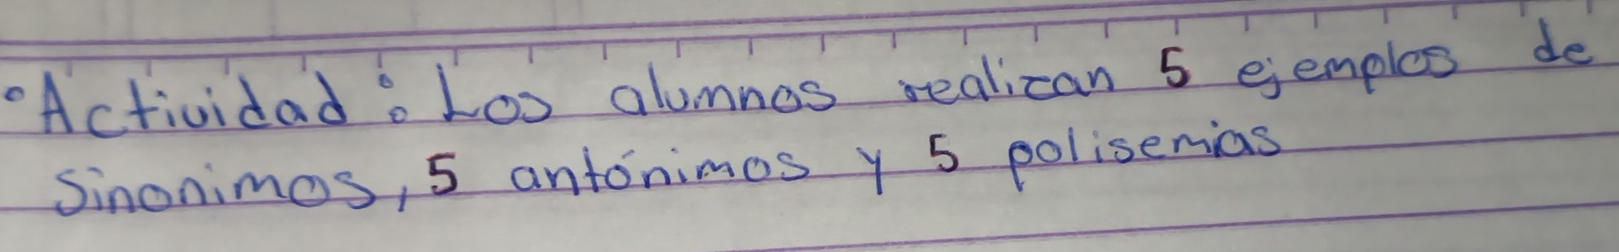 • Actividad: Los alumnos realizan 5 ejemplos de
sinonimos, 5 antónimos y 5 polisemias